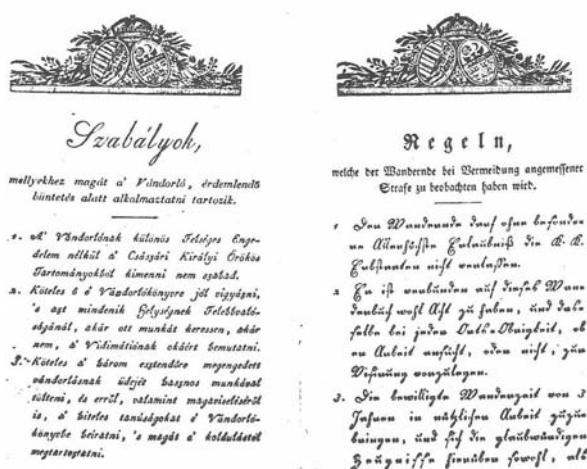 Szabályok,
mellyekhez magát a' Vándorló, érdemlendő
büntetés alatt alkalmaztatni tartozik.
1. A' Vándorlónak különös Felséges Enge-
delem nélkül a' Császári Királyi Örökös
Tartományokból kimenni nem szabad.
2. Köteles é Vándorlókönyvre jól vigyázni,
's azt mindenik Helységnek Felebbvaló-
ságánál, akár ott munkát keressen, akár
nem, a' Vidimátiónak okáért bemutatni.
3. Köteles a' három esztendőre megengedett
vándorlásnak üdejét hasznos munkával
tölteni, és erről, valamint magaviseletéről
is, a' hiteles tanúságokat é Vándorló-
könyvbe beiratni, 's magát a' koldulástól
megtartóztatni.
Regeln,
welche der Wandernde bei Vermeidung angemessener
Strafe zu beobachten haben wird.
1 Der Wandernde darf ohne besonde-
re Allerhöchste Erlaubniß die K. K.
Erbstaaten nicht verlassen.
2 Er ist verbunden auf dieses Wan-
derbuch wohl Acht zu haben, und das-
selbe bei jeder Orts-Obrigkeit, ob
er Arbeit ansucht, oder nicht, zur
Vidirung vorzulegen.
3. Die bewilligte Wanderzeit von 3
Jahren in nützlicher Arbeit zuzu-
bringen, und sich die glaubwürdigen
Zeugnisse hierüber sowohl, als